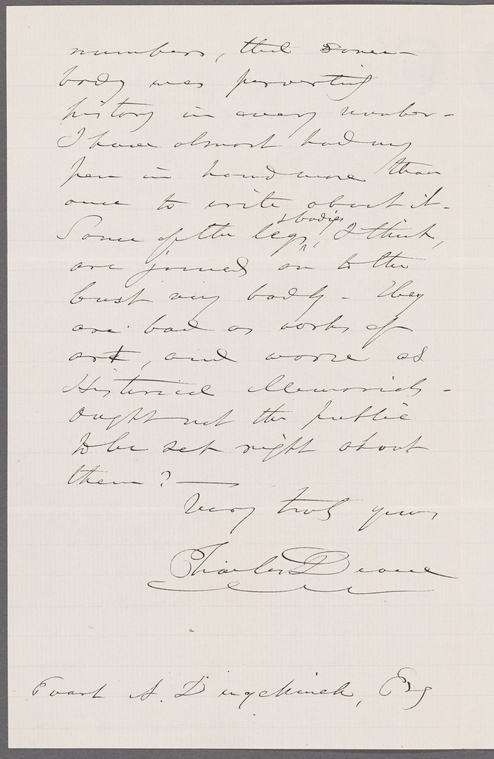 numbers, that some-
body was perverting
history in every number -
I have almost had my
pen in hand more than
once to write about it -
Some of the legs & bodies, I think,
are joined on to the
bust any body - They
are bad as works of
art, and worse as
Historical Memorials -
Ought not the public
to be set right about
them? —
Very truly yours
Charles Deane
Evart A. Duyckinck, Esq